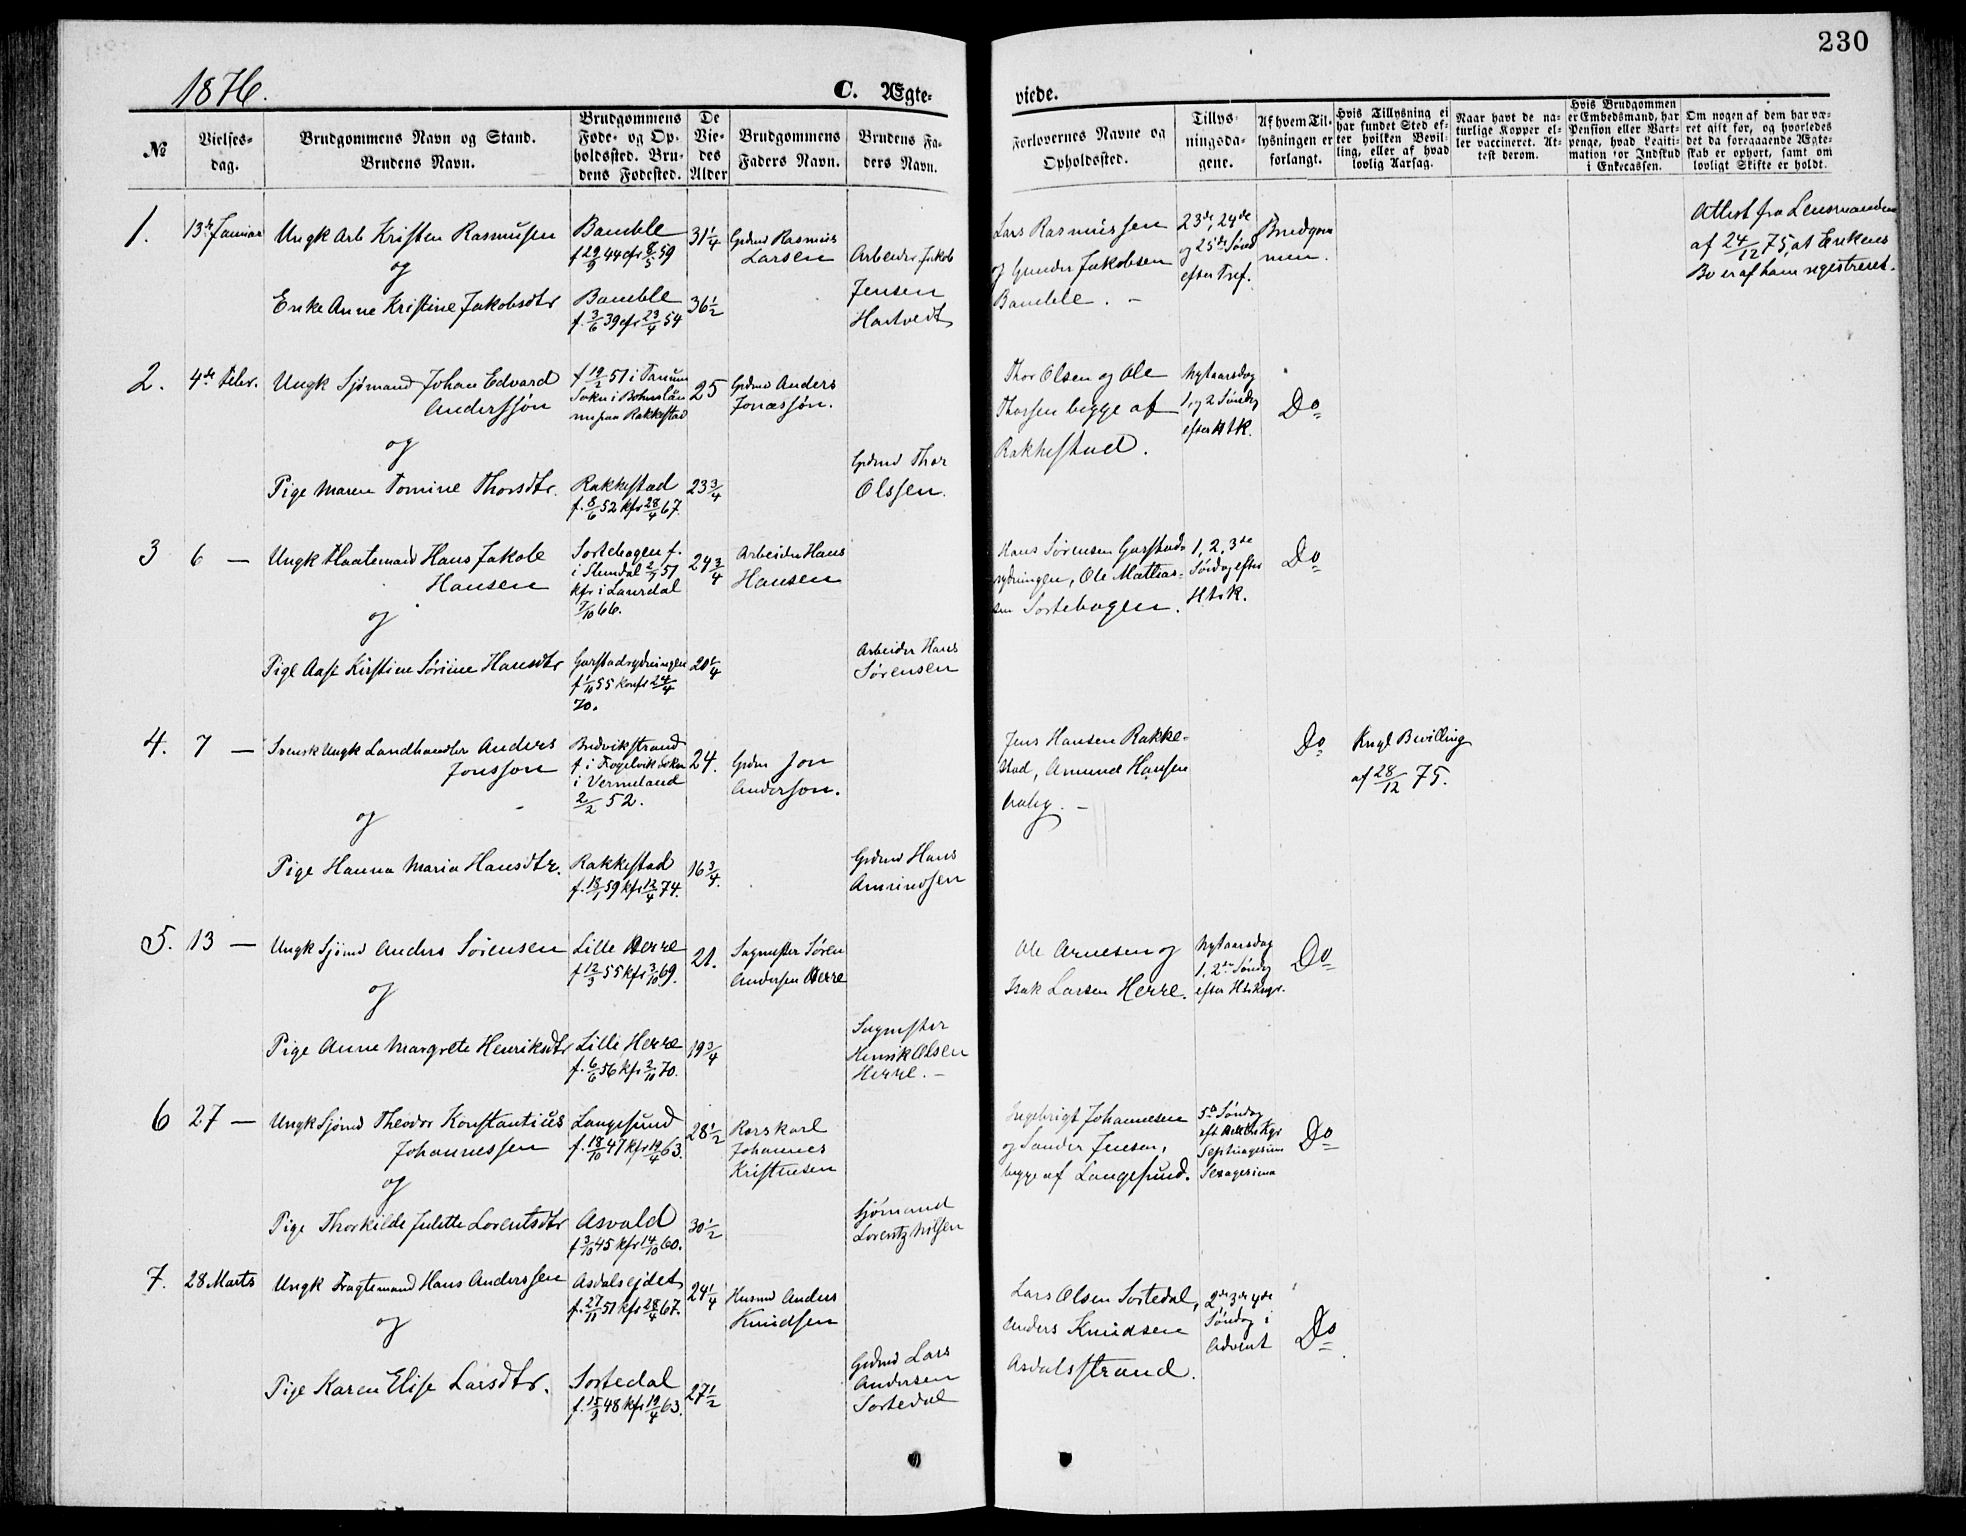 230
1876.
C. Ægte-
viede.
№
Vielses-
dag.
Brudgommens Navn og Stand.
Brudens Navn.
Brudgommens
Føde- og Op-
holdssted. Bru-
dens Fødested.
De
Vie-
des
Alder
Brudgommens
Faders Navn.
Brudens Fa-
ders Navn.
Forlovernes Navne og
Opholdssted.
Tillys-
ningsda-
gene.
Af hvem Til-
lysningen er
forlangt.
Hvis Tillysning ei
har fundet Sted ef-
ter hvilken Bevil-
ling, eller af hvad
lovlig Aarsag.
Naar havt de na-
turlige Kopper el-
ler vaccineret. At-
test derom.
Hvis Brudgommen
er Embedsmand, har
Pension eller Vart-
penge, hvad Legiti-
mation for Indskud
i Enkecassen.
Om nogen af dem har væ-
ret gift før, og hvorledes
det da foregaaende Ægte-
skab er ophørt, samt om
lovligt Skifte er holdt.
1.
13de Januar
Ungk Arb Kristen Rasmussen
og
Enke Anne Kristine Jakobsdtr
Bamble
f 29/9 44 cfr 8/5 59
Bamble
f. 3/6 39 cfr 23/4 54
31 1/4
36 1/2
Grdmd Rasmus
Larsen
Arbeider Jakob
Jensen
Hartvedt
Lars Rasmussen
og Gunder Jakobsen
Bamble. –
23de, 24de
og 25de Sønd
efter Tref.
Brudgom
men.
Attest fra Lensmanden
af 24/12 75, at Enkens
Bo er af ham registreret.
2.
4de Febr.
Ungk Sjømand Johan Edvard
Anderssøn
og
Pige Maren Tomine Thorsdtr.
f 19/2 51 i Tanum
Sokn i Bohuslän
nu paa Rakkestad
Rakkestad
f. 8/6 52 kfr 28/4 67.
25
23 3/4
Grdmd Anders
Jonassøn.
Grdmd Thor
Olssen.
Thor Olsen og Ole
Thorsen begge af
Rakkestad.
Nytaarsdag
1, og 2 Søndg
efter H3K.
Do
3
6 —
Ungk Flaatemand Hans Jakob
Hansen
og
Pige Aase Kirstine Sørine Hansdtr
Sortebogen f.
i Slemdal 2/7 51
kfr i Laurdal
7/10 66.
Garstadrydningen
f 1/10 55 konfr 24/4
70.
24 3/4
20 1/4
Arbeider Hans
Hansen
Arbeider Hans
Sørensen
Hans Sørensen Garstad-
rydningen, Ole Mathias-
sen Sortebogen.
1, 2, 3de
Søndag efter
H3K.
Do
4.
7 —
Svensk Ungk Landhandler Anders
Jonsson
og
Pige Hanna Maria Hansdtr.
Bredvikstrand
i Vermeland
2/2 52.
Rakkestad
f. 18/4 59 kfr 12/4 74.
24.
16 3/4.
Grdm Jon
Anderson.
Grdmd Hans
Amundsen
Jens Hansen Rakke-
stad, Amund Hansen
Do
Kngl Bevilling
af 28/12 75.
5.
13 —
Ungk Sjømd Anders Sørensen
og
Pige Anne Margrete Henriksdtr
Lille Herre
f 12/3 55 kfr 3/10 69.
Lille Herre
f. 6/6 56 kfr 2/10 70.
21.
19 3/4
Sagmester Søren
Andersen Herre
Sagmester
Henrik Olsen
Herre. –
Ole Arnesen og
Isak Larsen Herre.
Nytaarsdag
1, 2den Søndg
efter H3Kngr.
Do
6
27 —
Ungk Sjømd Theodor Konstantius
Johannessen
og
Pige Thorkilde Julette Lorentsdtr
Langesund
f. 18/10 47 kfr 19/4 63.
Asvald
f 3/10 45 kfr 14/10 60.
28 1/2
30 1/2
Rorskarl
Johannes
Kristensen
Sjømand
Lorentz Nilsen
Ingebrigt Johannesen
og Sander Jensen,
begge af Langesund.
5te Søndag
Septuagesima
Sexagesima
Do
7.
28 Marts
Ungk Fragtemand Hans Anderssen
og
Pige Karen Elise Larsdtr.
Asdalsejdet
f. 27/11 51 kfr 28/4 67.
Sortedal
f. 15/9 48 kfr 19/4 63.
24 1/4
27 1/2
Husmd Anders
Knudsen
Grdmd Lars
Andersen
Sortedal
Lars Olsen Sortedal,
Anders Knudsen
Asdalsstrand.
2den 3de 4de
Søndag i
Advent
Do